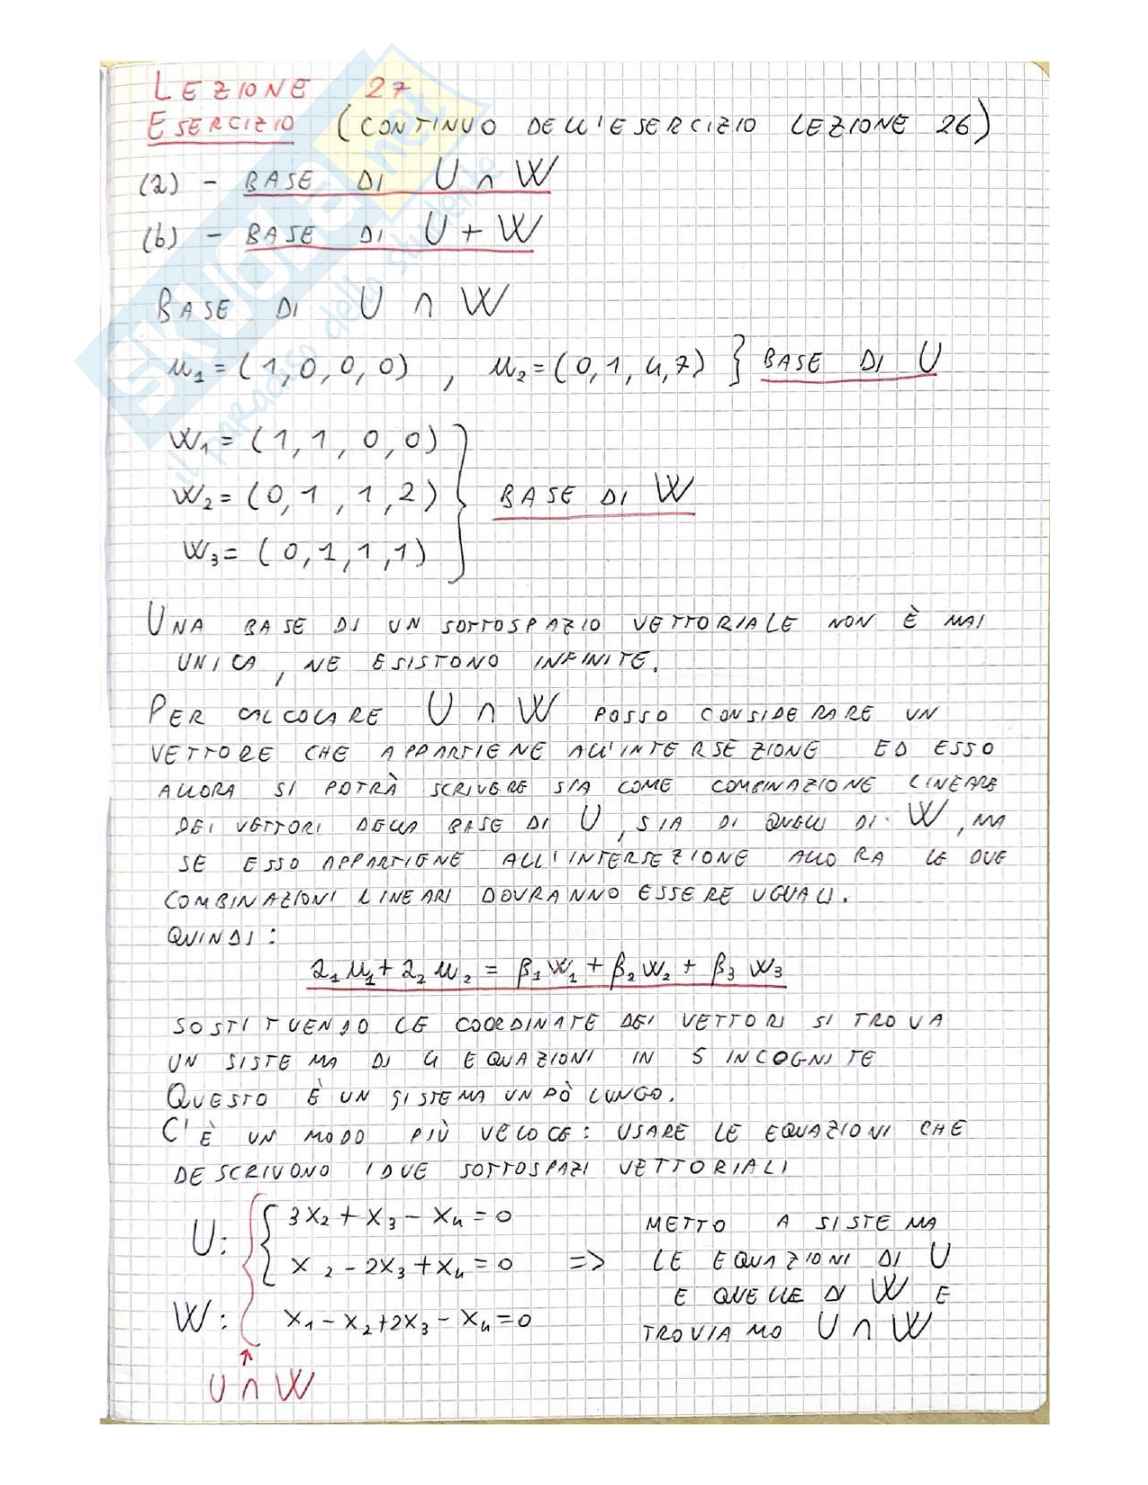 LEZIONE 27
ESERCIZIO (CONTINUO DELL'ESERCIZIO LEZIONE 26)
(a) - BASE DI U ∩ W
(b) - BASE DI U + W
BASE DI U ∩ W
u₁ = (1,0,0,0) , u₂ = (0,1,4,7) } BASE DI U
W₁ = (1,1,0,0)
W₂ = (0,1,1,2) } BASE DI W
W₃ = (0,1,1,1)
UNA BASE DI UN SOTTOSPAZIO VETTORIALE NON È MAI
UNICA, NE ESISTONO INFINITE.
PER CALCOLARE U ∩ W POSSO CONSIDERARE UN
VETTORE CHE APPARTIENE ALL'INTERSEZIONE ED ESSO
ALLORA SI POTRÀ SCRIVERE SIA COME COMBINAZIONE LINEARE
DEI VETTORI DELLA BASE DI U, SIA DI QUELLI DI W, MA
SE ESSO APPARTIENE ALL'INTERSEZIONE ALLORA LE DUE
COMBINAZIONI LINEARI DOVRANNO ESSERE UGUALI.
QUINDI:
α₁ u₁ + α₂ u₂ = β₁ W₁ + β₂ W₂ + β₃ W₃
SOSTITUENDO LE COORDINATE DEI VETTORI SI TROVA
UN SISTEMA DI 4 EQUAZIONI IN 5 INCOGNITE
QUESTO È UN SISTEMA UN PÒ LUNGO.
C'È UN MODO PIÙ VELOCE: USARE LE EQUAZIONI CHE
DESCRIVONO I DUE SOTTOSPAZI VETTORIALI
U: { 3X₂ + X₃ - X₄ = 0
X₂ - 2X₃ + X₄ = 0
W: X₁ - X₂ + 2X₃ - X₄ = 0
↑
U ∩ W
=> METTO A SISTEMA
LE EQUAZIONI DI U
E QUELLE DI W E
TROVIAMO U ∩ W
SKUOLA.net
il paradiso dello studente